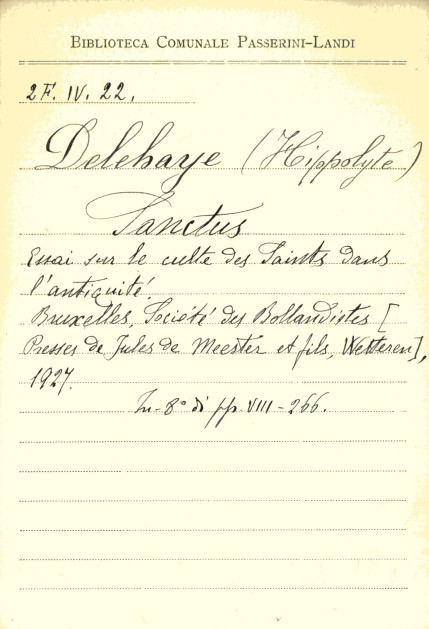 BIBLIOTECA COMUNALE PASSERINI-LANDI
2F. IV. 22.
Delehaye (Hippolyte)
Sanctus
Essai sur le culte des Saints dans
l'antiquité.
Bruxelles, Société des Bollandistes [
Presses de Jules de Meester et fils, Wetteren],
1927.
In-8° di pp. VIII-266.